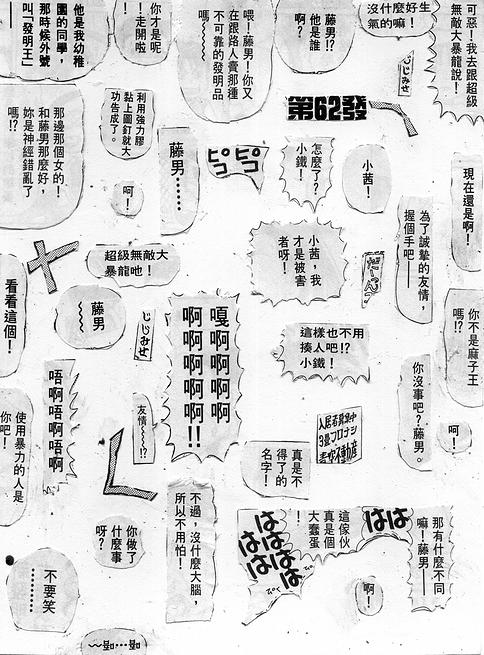 可惡！我去跟超級
無敵大暴龍說！
沒什麼好生
氣的嘛！
藤男!?
他是誰
啊？
喂！藤男！你又
在跟路人賣那種
不可靠的發明品
嗎～～
你才是呢
！走開啦
！
他是我幼稚
園的同學，
那時候外號
叫「發明王」
じじみせ
第62發
現在還是啊！
小茜！
怎麼了？
小鐵！
ピコピコ
藤男……
利用強力膠
黏上圖釘就大
功告成了。
那邊那個女的！
和藤男那麼好，
妳是神經錯亂了
嗎!?
呵！
為了誠摯的友情，
握個手吧——
小茜，我
才是被害
者呀！
超級無敵大
暴龍吔！
看看這個！
你不是麻子王
嗎!?
藤男
～～
じじみせ
嘎啊啊啊啊
啊啊啊啊啊!!
這樣也不用
揍人吧!?
小鐵！
你沒事吧？藤男。
呵！
唔啊唔啊唔啊
友情～～!?
使用暴力的人是
你吧！
真是不
得了的
名字！
不過，沒什麼大腦，
所以不用怕！
你做了
什麼事
呀？
這傢伙
真是個
大蠢蛋
！
はははははははは
はは
那有什麼不同
嘛！藤男——
啊！
不要笑
……